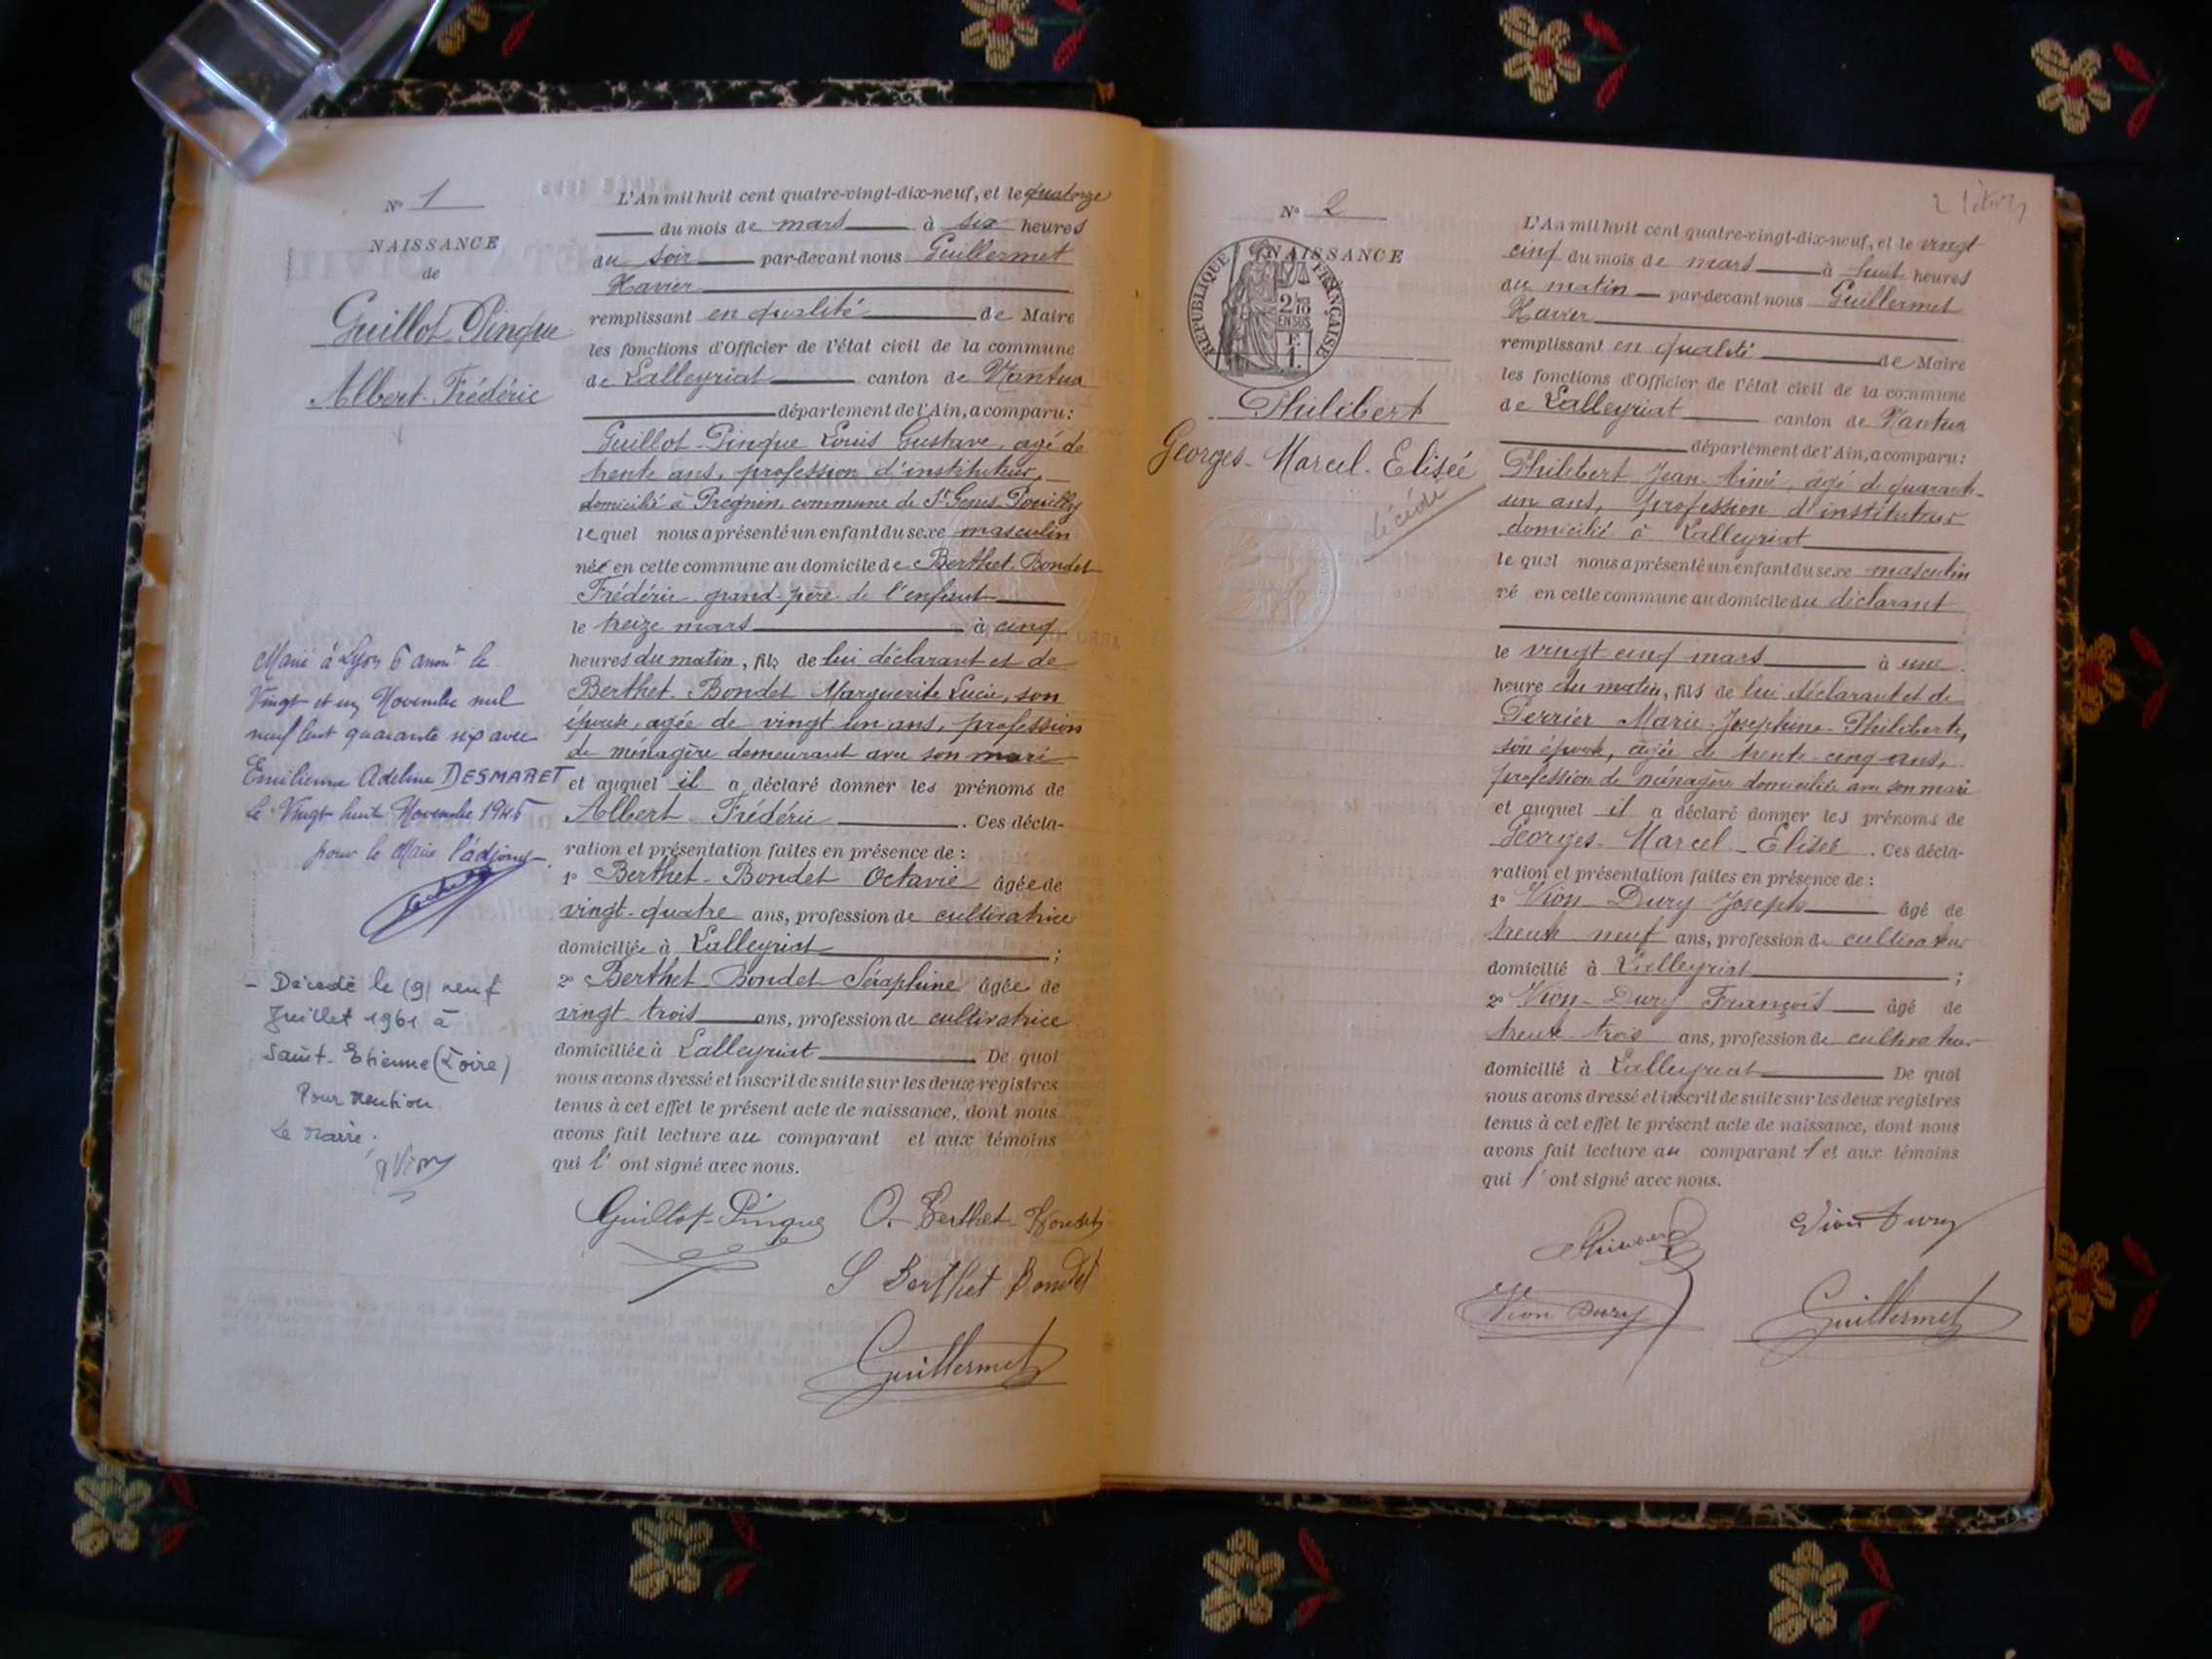 N° 1
NAISSANCE
de
Guillot-Pinque
Albert-Frédéric
Marié à Lyon 6 arrondt le
Vingt et un Novembre mil
neuf cent quarante six avec
Emilienne Adeline DESMARET
le Vingt huit Novembre 1946
pour le Maire l'adjoint
- Décédé le (9) neuf
Juillet 1961 à
Saint-Etienne (Loire)
Pour mention
Le Maire :
L'An mil huit cent quatre-vingt-dix-neuf, et le quatorze
du mois de mars à six heures
du soir par-devant nous Guillermet
Xavier
remplissant en qualité de Maire
les fonctions d'Officier de l'état civil de la commune
de Lalleyriat canton de Nantua
département de l'Ain, a comparu :
Guillot-Pinque Louis Gustave, agé de
trente ans, profession d'instituteur,
domicilié à Pregnin, commune de St Genis-Pouilly
lequel nous a présenté un enfant du sexe masculin
né en cette commune au domicile de Berthet-Bondet
Frédéric grand-père de l'enfant
le treize mars à cinq
heures du matin, fils de lui déclarant et de
Berthet-Bondet Marguerite Lucie, son
épouse, agée de vingt un ans, profession
de ménagère demeurant avec son mari
et auquel il a déclaré donner les prénoms de
Albert Frédéric . Ces décla-
ration et présentation faites en présence de :
1° Berthet-Bondet Octavie âgée de
vingt-quatre ans, profession de cultivatrice
domiciliée à Lalleyriat ;
2° Berthet-Bondet Séraphine âgée de
vingt-trois ans, profession de cultivatrice
domiciliée à Lalleyriat De quoi
nous avons dressé et inscrit de suite sur les deux registres
tenus à cet effet le présent acte de naissance, dont nous
avons fait lecture au comparant et aux témoins
qui l'ont signé avec nous.
Guillot-Pinque O. Berthet-Bondet
S Berthet Bondet
Guillermet
N° 2
NAISSANCE
RÉPUBLIQUE FRANÇAISE
2/10
EN SUS
F.
1.
Philibert
Georges-Marcel-Elisée
décédé
L'An mil huit cent quatre-vingt-dix-neuf, et le vingt
cinq du mois de mars à huit heures
du matin par-devant nous Guillermet
Xavier
remplissant en qualité de Maire
les fonctions d'Officier de l'état civil de la commune
de Lalleyriat canton de Nantua
département de l'Ain, a comparu :
Philibert Jean-Aimé, âgé de quarante-
un ans, profession d'instituteur
domicilié à Lalleyriat
lequel nous a présenté un enfant du sexe masculin
né en cette commune au domicile du déclarant
le vingt-cinq mars à une
heure du matin, fils de lui déclarant et de
Perrier Marie-Josephine-Philiberte,
son épouse, âgée de trente-cinq ans,
profession de ménagère domiciliée avec son mari
et auquel il a déclaré donner les prénoms de
Georges-Marcel-Elisée . Ces décla-
ration et présentation faites en présence de :
1° Vion-Dury Joseph âgé de
trente neuf ans, profession de cultivateur
domicilié à Lalleyriat ;
2° Vion-Dury François âgé de
trente-trois ans, profession de cultivateur
domicilié à Lalleyriat De quoi
nous avons dressé et inscrit de suite sur les deux registres
tenus à cet effet le présent acte de naissance, dont nous
avons fait lecture au comparant et aux témoins
qui l'ont signé avec nous.
Philibert Vion Dury
Vion Dury Guillermet